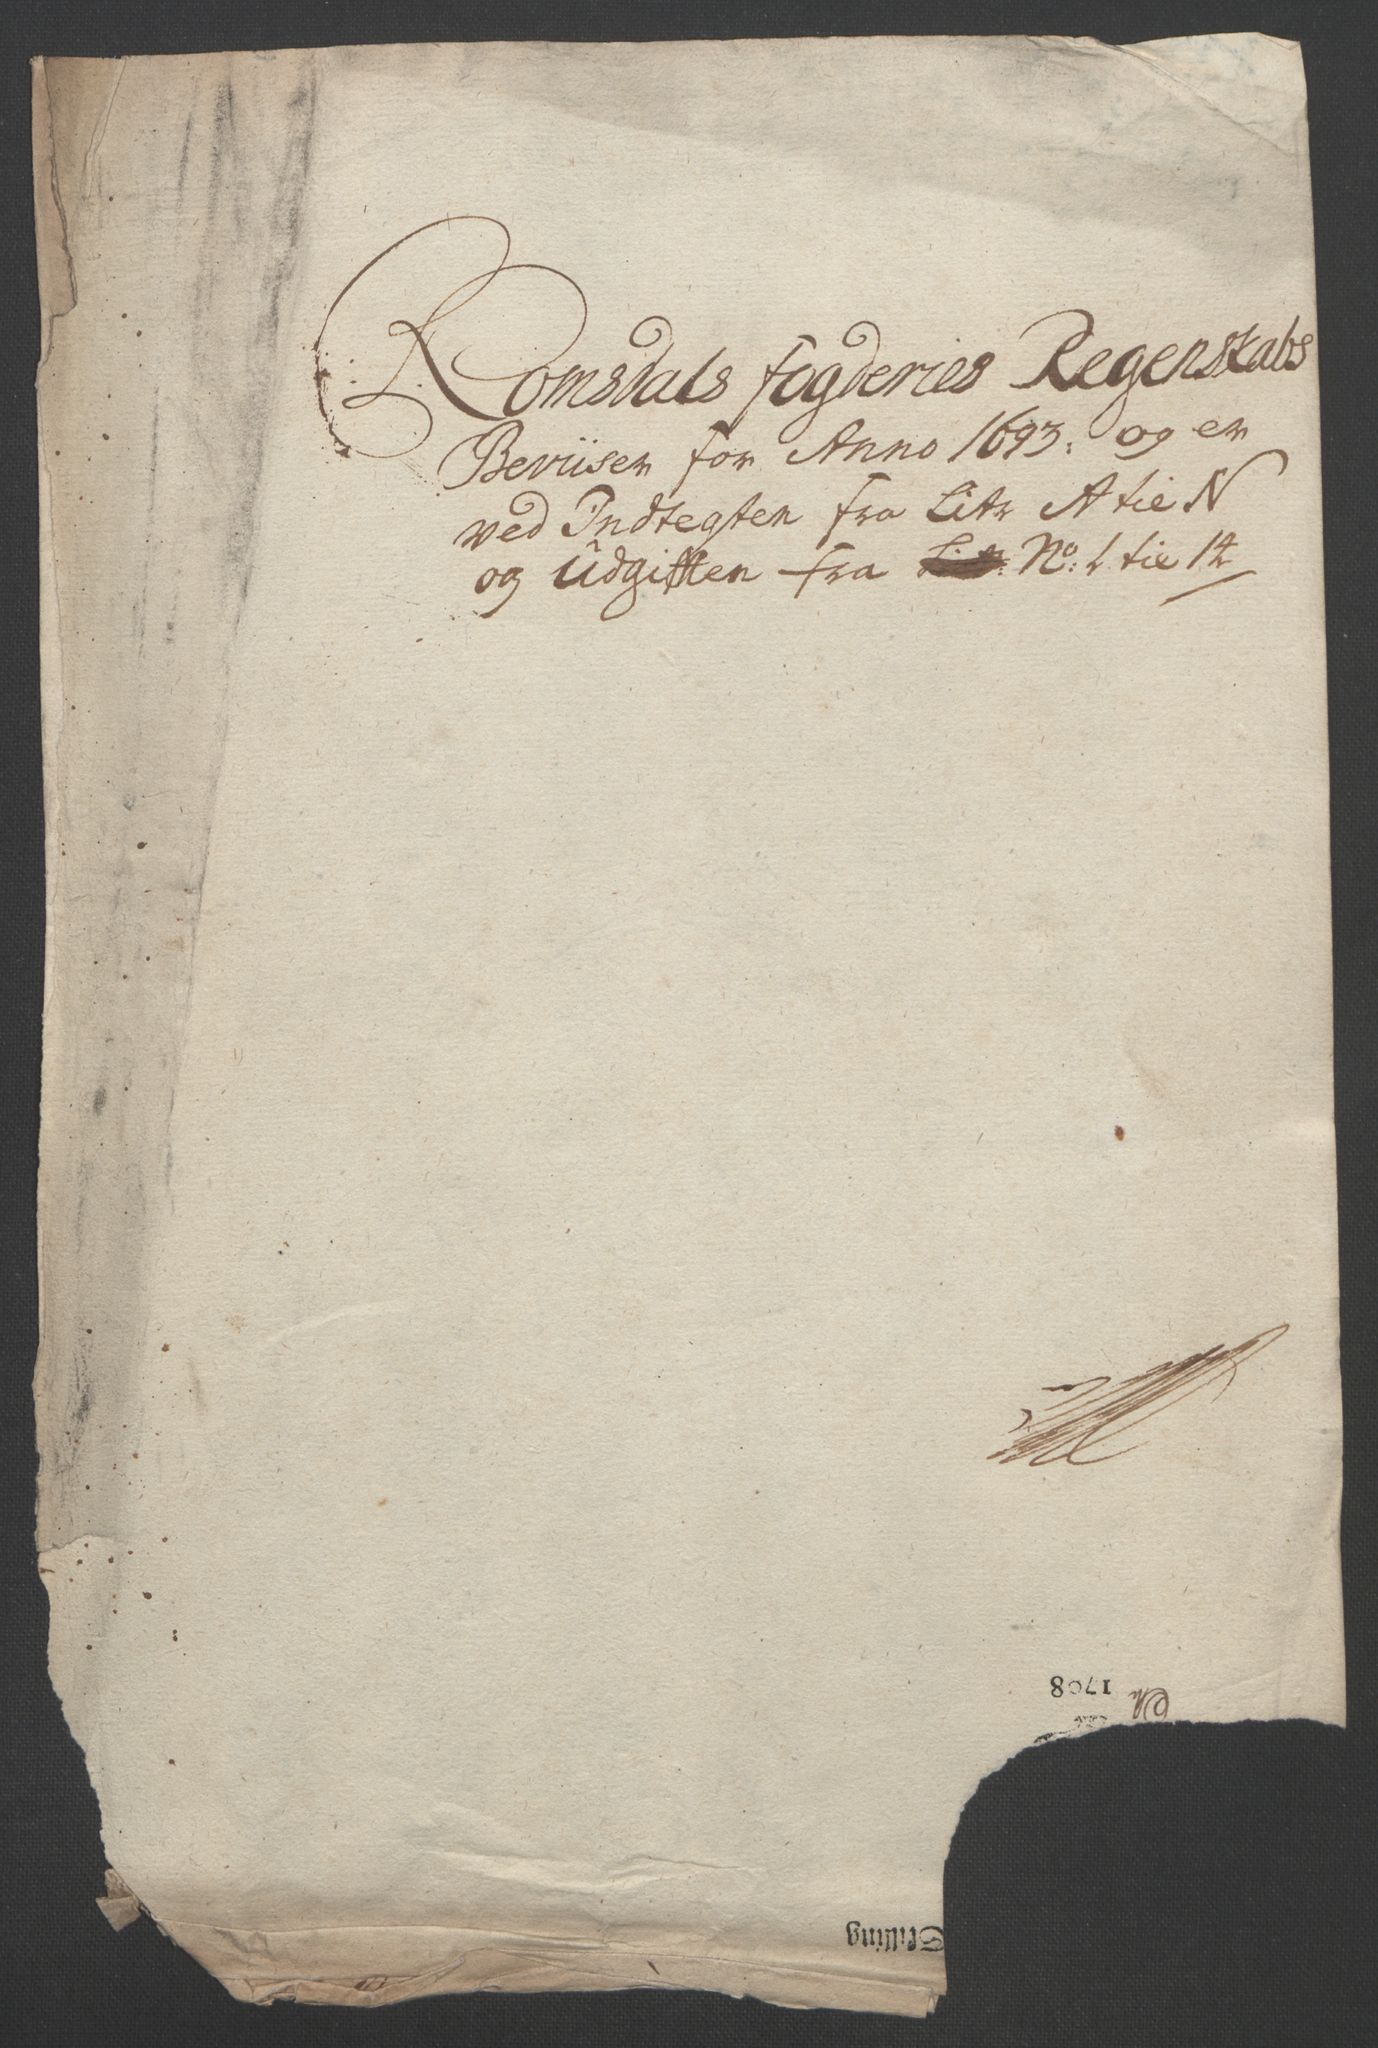 Romsdals fogderies Regenskabs
Beviiser for Anno 1693. og er
ved Indtegten fra Litr A tie N
og Udgifften fra Litr: No: 1 tie 14
1708
Skilling